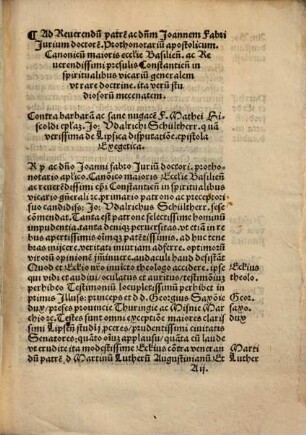 Ad Reuerendū patrē ac dnm Joannem Fabri
Jurium doctorē. Prothonotariū apostolicum.
Canonicū maioris ecclie Basilien̄. ac Re
uerendissimi presulis Constantien̄ in
spiritualibus vicariū generalem
vt rare doctrine, ita veri stu
diosorū mecenatem.
Contra barbarā ac sane nugacē F. Mathei
scoldi eplaz. Jo: Vdalrichi Schiltherr. q̄ uā
verissima de Lipsica disputatiōe. epistola
Exegetica.
R p ac dño Joanni fabro Juriū doctori. protho-
notario aplico. Canōico maioris Ecclie Basilien̄
ac reuerēdissimi epi Constantien̄ in spiritualibus
vicario generali τc. primario patrono ac preceptori
suo candidiss: Jo: Vdalrichus Schiltherr. sese
cōmendat. Tanta est patrone selectissime hominū
impudentia. tanta deniqz peruersitas. vt etiā in re-
bus apertissimis oīmqz patētissimis. ad hūc tene
bras inijcere. veritati nimium adserere. optimorū
virorū opinionē inducere. audaculi haud desistāt
Quod et Eckio viro inuicto theologo accidere. ipse
qui vidi et audiui. oculatus et auritus. testimoniū
perhibeo Testimoniū locupletissimū perhibet in
primis Illustr: princeps et d d. Georgius Saxōie
dux/ preses prouincie Thuringie ac Misnie Mar
chio τc. Testes sunt omni exceptiōe maiores claris
simi Lipsēn̄ studij pr̄ceres/ prudentissimi ciuitatis
Senatores: quāto oīuz applausu/ quāta cū laude
vt erudite ita modestissime Eckius cōtra veneran
dū patrē d Martinū Lutherū Augustinianū: Et
Eckius
theolo.
Geor.
saxo.
dux
Marti
Luther
Aij.